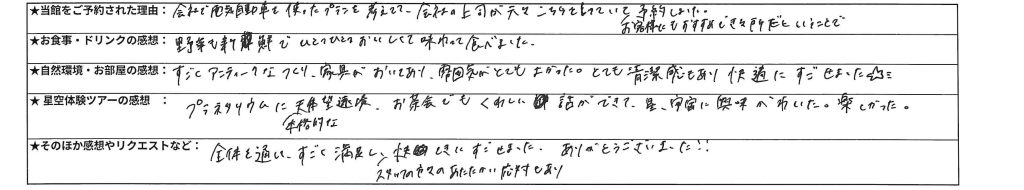 ★当館をご予約された理由： 会社で電気自動車を使ったプランを考えてて、会社の上司が元々こちらを知っていて予約しました。
お客様にもおすすめできる所だということで
★お食事・ドリンクの感想： 野菜も新鮮でひとつひとつおいしくて味わって食べました。
★自然環境・お部屋の感想： すごくアンティークなつくり、家具がおいてあり、雰囲気がとてもよかった。とても清潔感もあり快適にすごせました☆ミ
★星空体験ツアーの感想 ： プラネタリウムに天体望遠鏡、お茶会でもくわしい話ができて、星、宇宙に興味がわいた。楽しかった。
本格的な
★そのほか感想やリクエストなど： 全体を通し、すごく満足し、快適にすごせました。ありがとうございました!!
スタッフの方々のあたたかい応対もあり